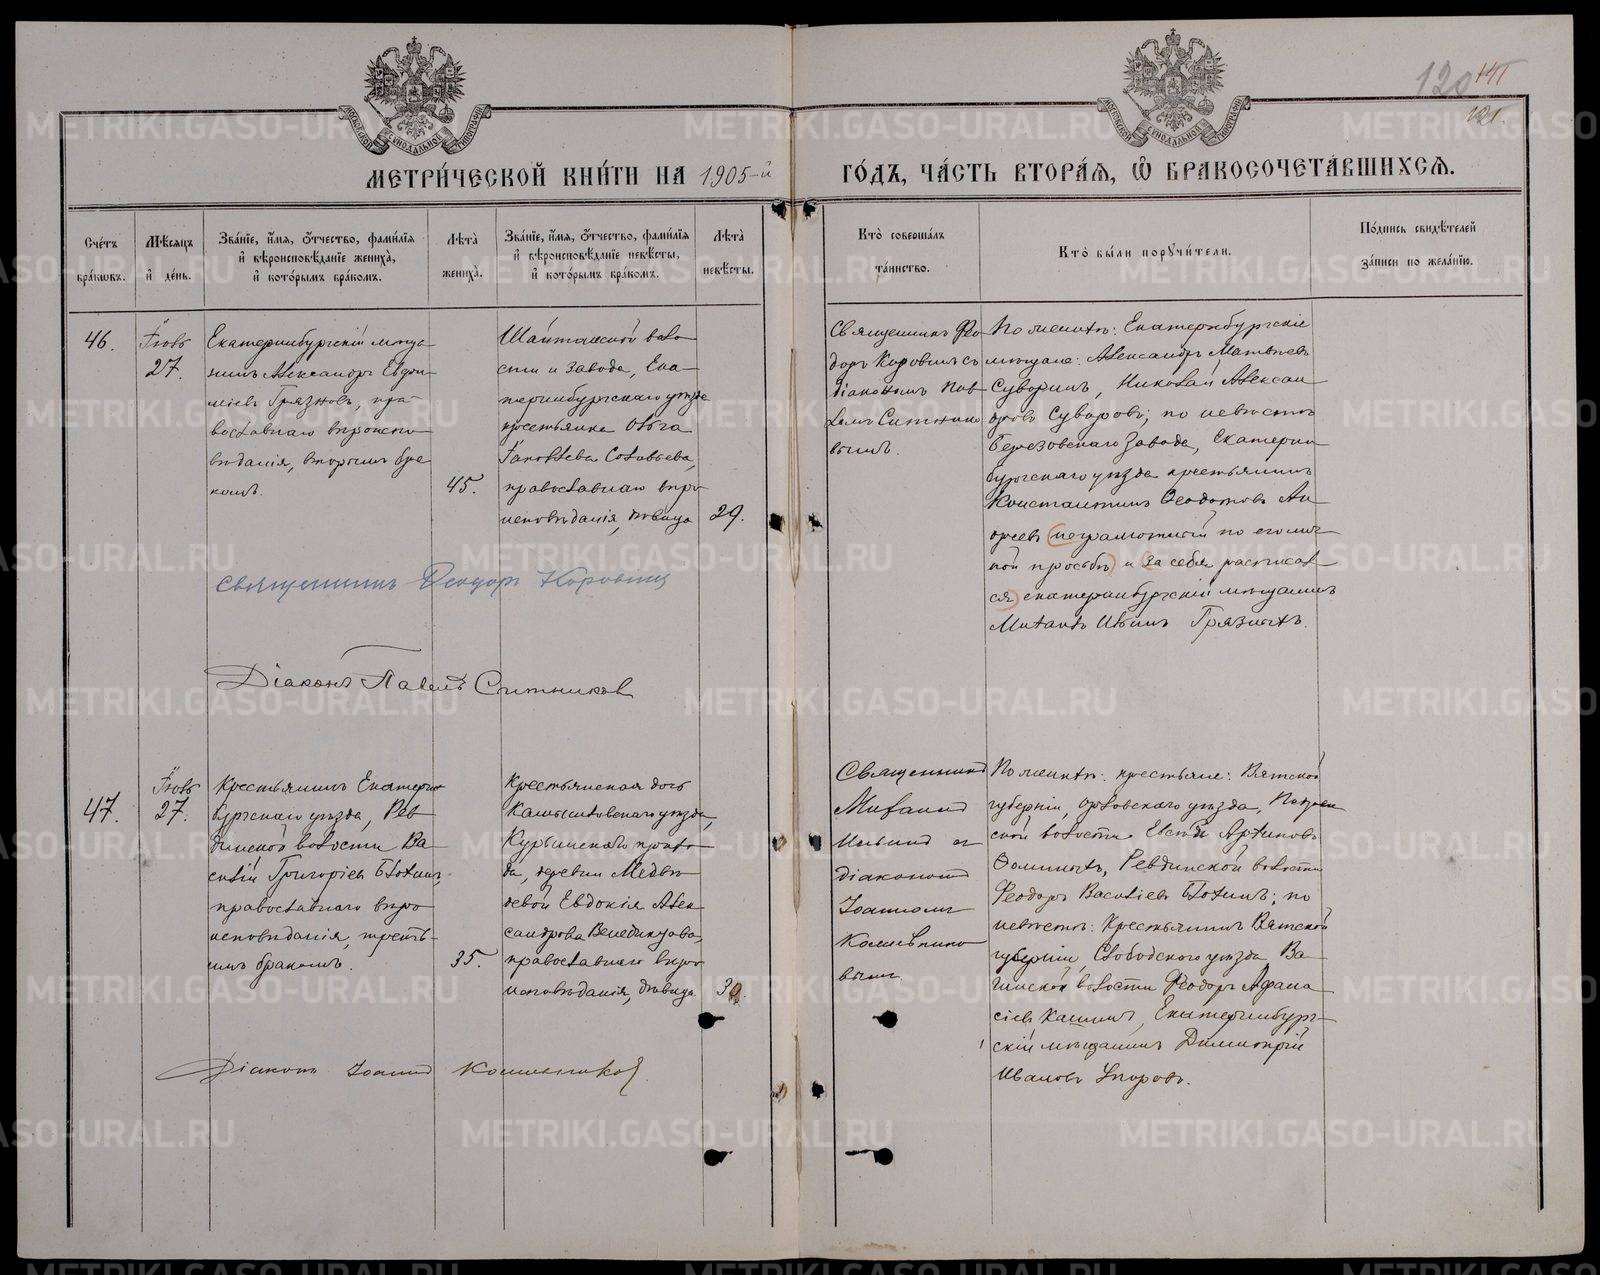 120 141
121.
МОСКОВСКОЙ СѴНОДАЛЬНОЙ ТИПОГРАФІИ
МОСКОВСКОЙ СѴНОДАЛЬНОЙ ТИПОГРАФІИ
МЕТРИ́ЧЕСКОЙ КНИ́ГИ НА 1905-й ГО́ДЪ, ЧА́СТЬ ВТОРА́Я, Ѡ҆ БРАКОСОЧЕТА́ВШИХСЯ.
Сче́тъ
бра́кωвъ.
Мѣ́сяцъ
и҆ де́нь.
Зва́нїе, и҆́мя, ѻ҆́тчество, фами́лїя
и҆ вѣроисповѣ́данїе жениха̀,
и҆ кото́рымъ бра́комъ.
Лѣта̀
жениха̀.
Зва́нїе, и҆́мя, ѻ҆́тчество, фами́лїя
и҆ вѣроисповѣ́данїе невѣ́сты,
и҆ кото́рымъ бра́комъ.
Лѣта̀
невѣ́сты.
Кто̀ соверша́лъ
та́инство.
Кто̀ бы́ли порꙋчи́тели.
По́дпись свидѣ́телей
за́писи по жела́нїю.
46.
Іюль
27.
Екатеринбургскій мѣща-
нинъ Александръ Евфи-
міевъ Грязновъ, пра-
вославнаго вѣроиспо-
вѣданія, вторымъ бра-
комъ.
45.
Шайтанской воло-
сти и завода, Ека-
теринбургскаго уѣзда
крестьянка Ольга
Іаковлева Соловьева,
православнаго вѣро-
исповѣданія, дѣвица
29.
Священникъ Ѳео-
доръ Коровинъ съ
діакономъ Пав-
ломъ Ситнико-
вымъ.
По женихѣ: Екатеринбургскіе
мѣщане: Александръ Матвѣевъ
Суворинъ, Николай Алексан-
дровъ Суворовъ; по невѣстѣ
Березовскаго завода, Екатерин-
бургскаго уѣзда крестьянинъ
Константинъ Ѳеодотовъ Ан-
дреевъ (неграмотный по его лич-
ной просьбѣ) и (за себя расписал-
ся) екатеринбургскій мѣщанинъ
Михаилъ Ивинъ Грязныхъ.
священникъ Ѳеодоръ Коровинъ
Діаконъ Павелъ Ситниковъ
47.
Іюль
27.
Крестьянинъ Екатерин-
бургскаго уѣзда, Рев-
динской волости Ва-
силій Григоріевъ Блохинъ,
православнаго вѣро-
исповѣданія, треть-
имъ бракомъ.
35.
Крестьянская дочь
Камышловскаго уѣзда,
Курьинскаго прихо-
да, деревни Медвѣ-
девой Евдокія Алек-
сандрова Венедиктова,
православнаго вѣро-
исповѣданія, дѣвица.
Священникъ
Михаилъ
Ильинъ съ
діакономъ
Іоанномъ
По женихѣ: крестьяне: Вятской
губерніи, Орловскаго уѣзда,
ской волости
Ревдинской волости
Ѳеодоръ Васильевъ Блохинъ; по
невѣстѣ: Крестьянинъ Вятской
губерніи, Слободскаго уѣзда Ва-
гинской волости Ѳеодоръ Афана-
сіевъ Кашинъ, Екатеринбург-
скій мѣщанинъ Димитрій
Ивановъ Упоровъ.
Діаконъ Іоаннъ
METRIKI.GASO-URAL.RU